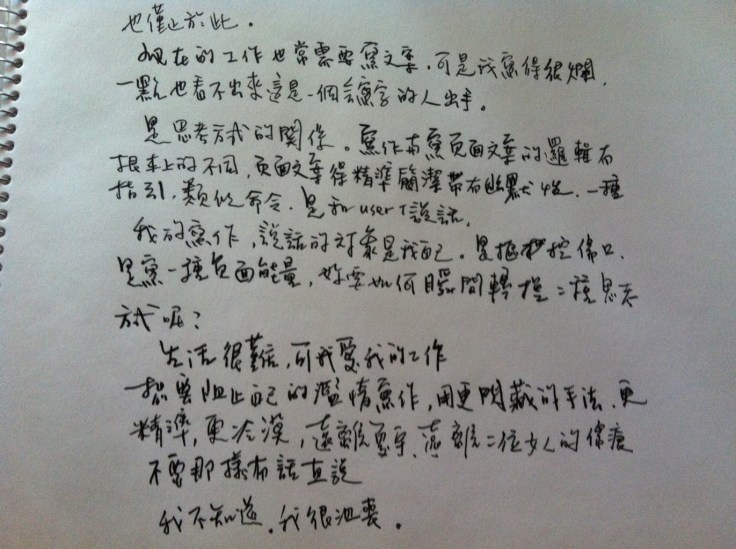 也僅止於此。
現在的工作也常需要寫文案,可是我寫得很爛,
一點也看不出來這是一個會寫字的人出手。
是思考方式的關係。寫作和寫頁面文案的邏輯有
根本上的不同,頁面文案得精準簡潔帶有幽默 一種
指引,類似命令,是和user說話,
我的寫作,說話的對象是我自己。是摳挖傷口,
是寫一種負面能量,妳要如何瞬間轉換二種思考
方式呢?
生活很難,可我愛我的工作
想要阻止自己的濫情寫作,用更閃藏的手法,更
精準,更冷漠,遠離 遠離二位女人的傷痕
不要那樣有話直說
我不知道。我很沮喪。